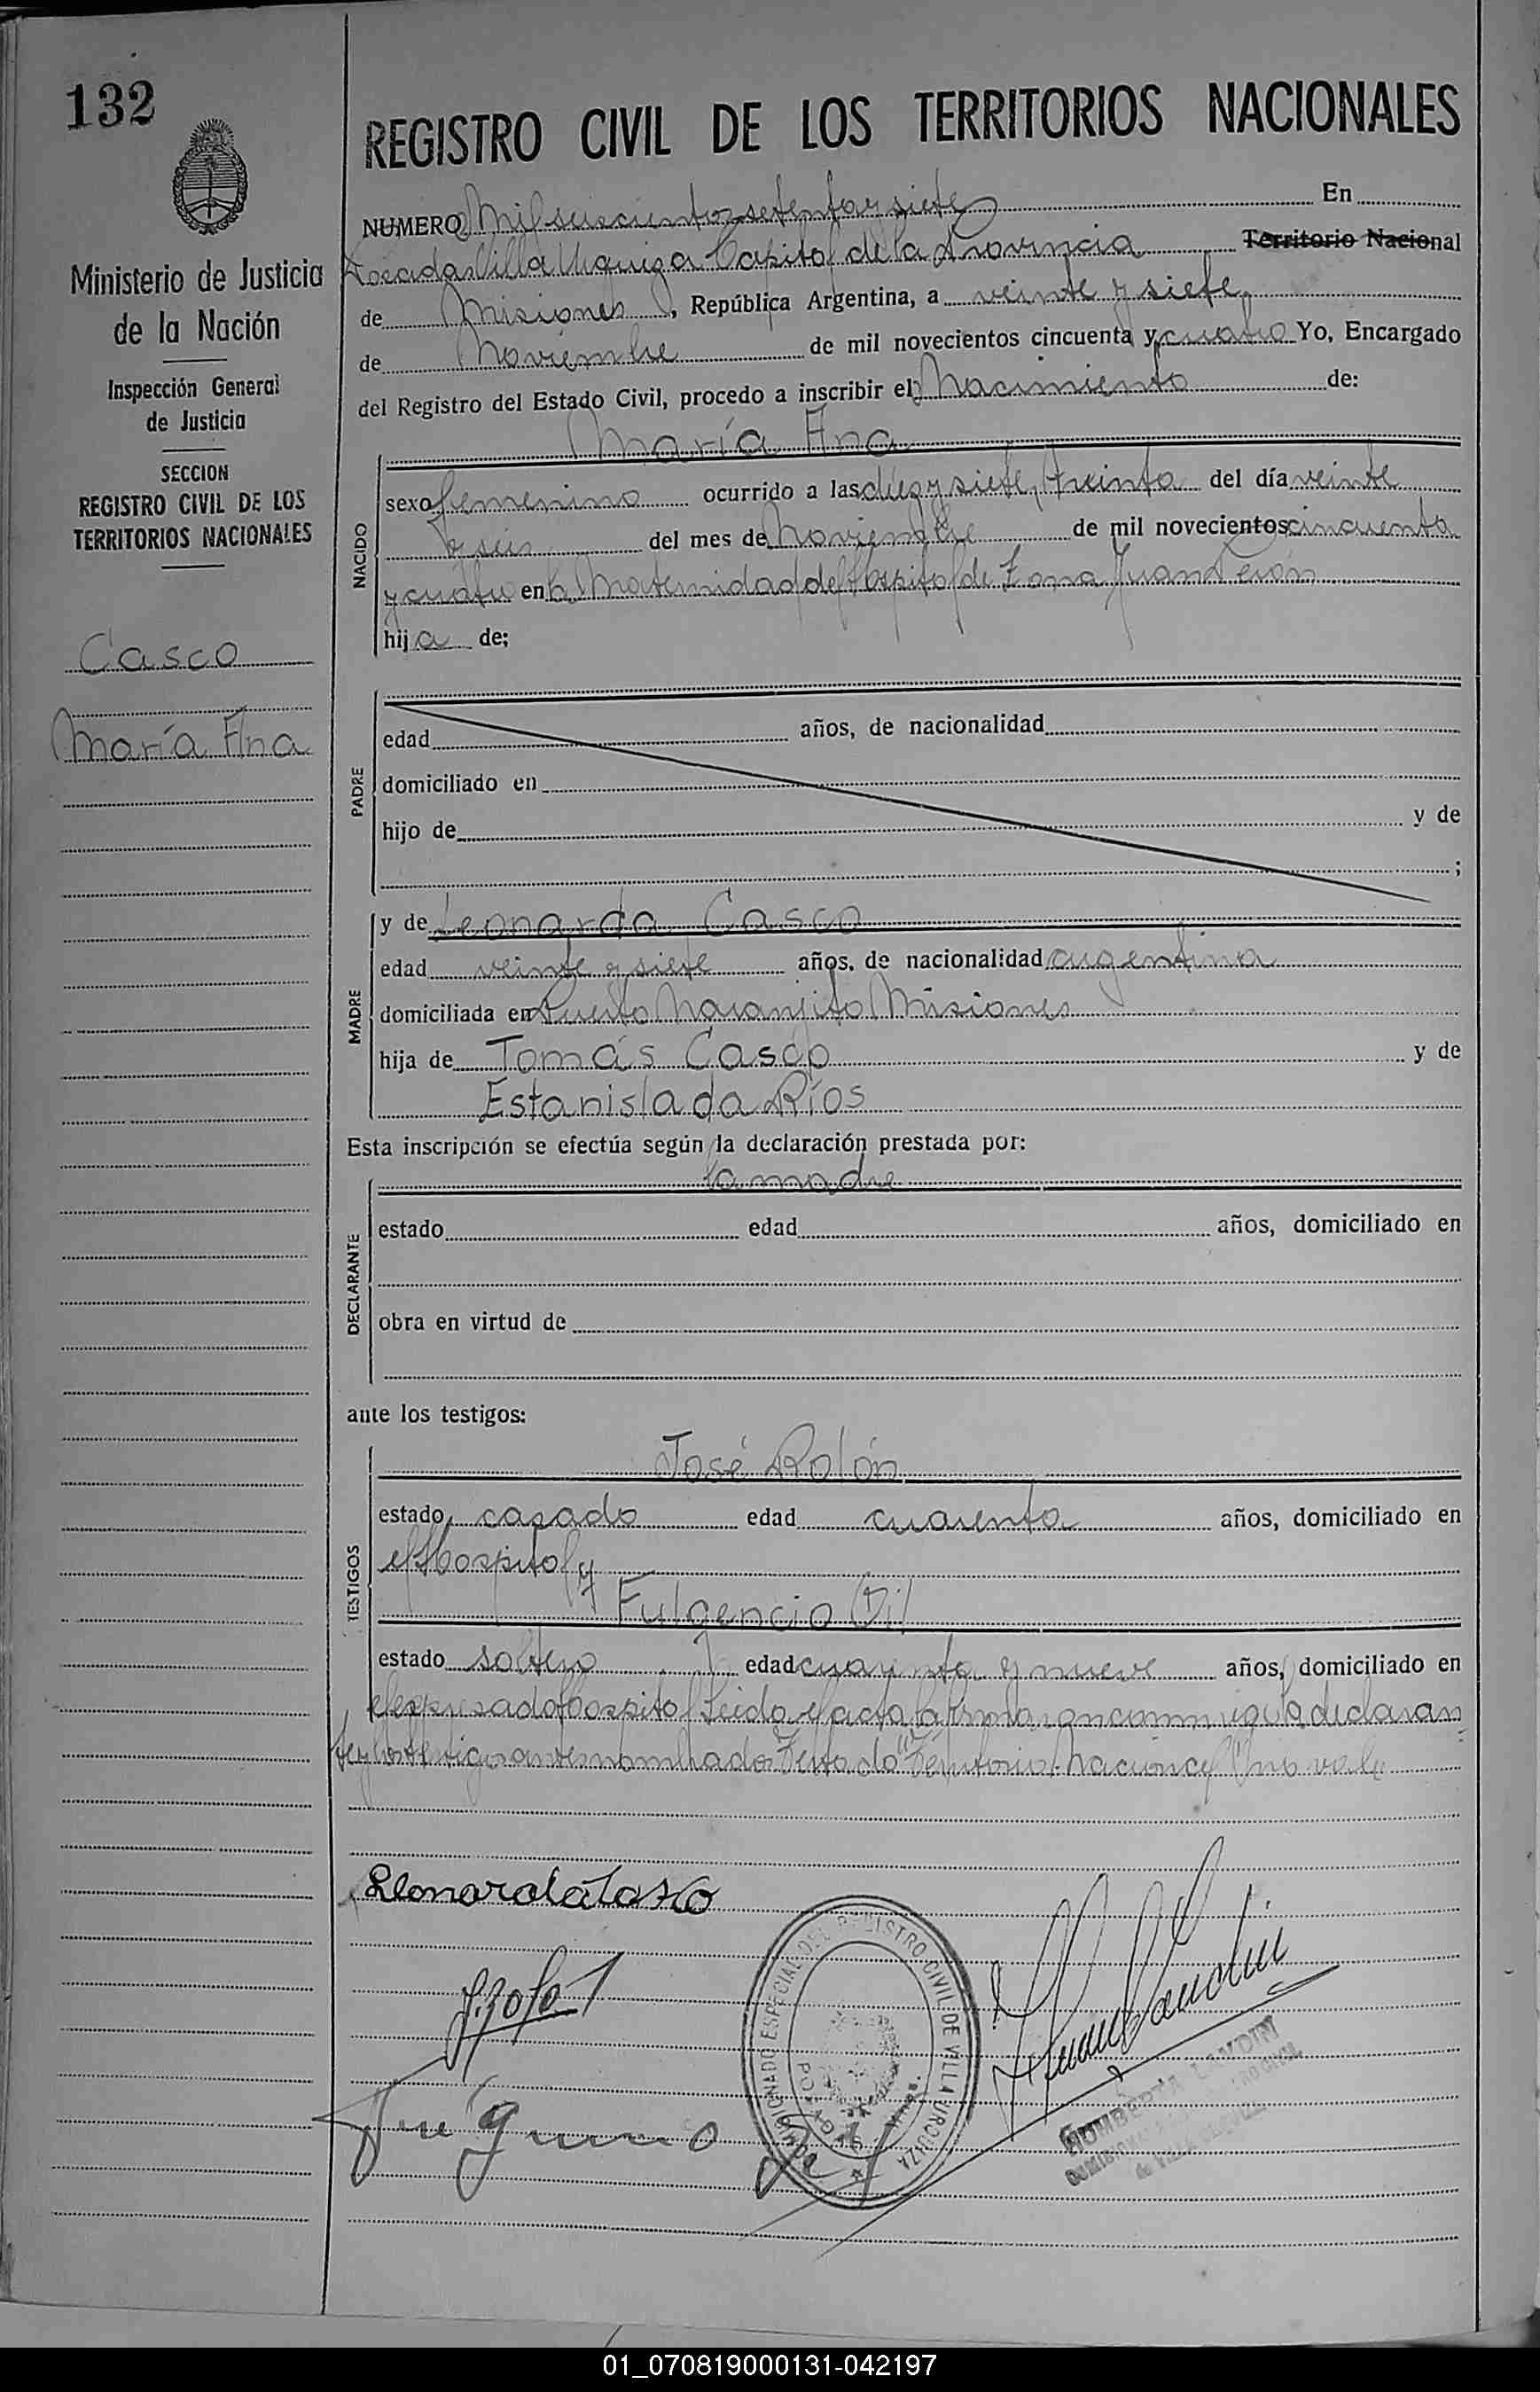 132
REGISTRO CIVIL DE LOS TERRITORIOS NACIONALES
Ministerio de Justicia
de la Nación
Inspección General
de Justicia
SECCION
REGISTRO CIVIL DE LOS
TERRITORIOS NACIONALES
Casco
María Ana
NUMERO Mil seiscientos setenta y siete En
Posadas Villa Urquiza Capital de la Provincia Territorio Nacional
de Misiones, República Argentina, a veinte y siete
de Noviembre de mil novecientos cincuenta y cuatro Yo, Encargado
del Registro del Estado Civil, procedo a inscribir el Nacimiento de:
María Ana
NACIDO
sexo femenino ocurrido a las diez y siete, treinta del día veinte
y seis del mes de Noviembre de mil novecientos cincuenta
y cuatro en la Maternidad del Hospital de Zona Juan Perón
hija de;
PADRE
edad años, de nacionalidad
domiciliado en
hijo de y de
;
MADRE
y de Leonarda Casco
edad veinte y siete años, de nacionalidad argentina
domiciliada en Puerto Naranjito Misiones
hija de Tomás Casco y de
Estanislada Ríos
Esta inscripción se efectúa según la declaración prestada por:
la madre
DECLARANTE
estado edad años, domiciliado en
obra en virtud de
ante los testigos:
José Rolón
TESTIGOS
estado casado edad cuarenta años, domiciliado en
el Hospital y
Fulgencio Gil
estado soltero edad cuarenta y nueve años, domiciliado en
el expresado Hospital Leída el acta la firmaron conmigo la declaran
te y los testigos antes nombrados Testado "Territorio Nacional" no vale
Leonarda Casco
J. Rolon
COMISIONADO ESPECIAL DEL REGISTRO CIVIL DE VILLA URQUIZA
POSADAS
01_070819000131-042197